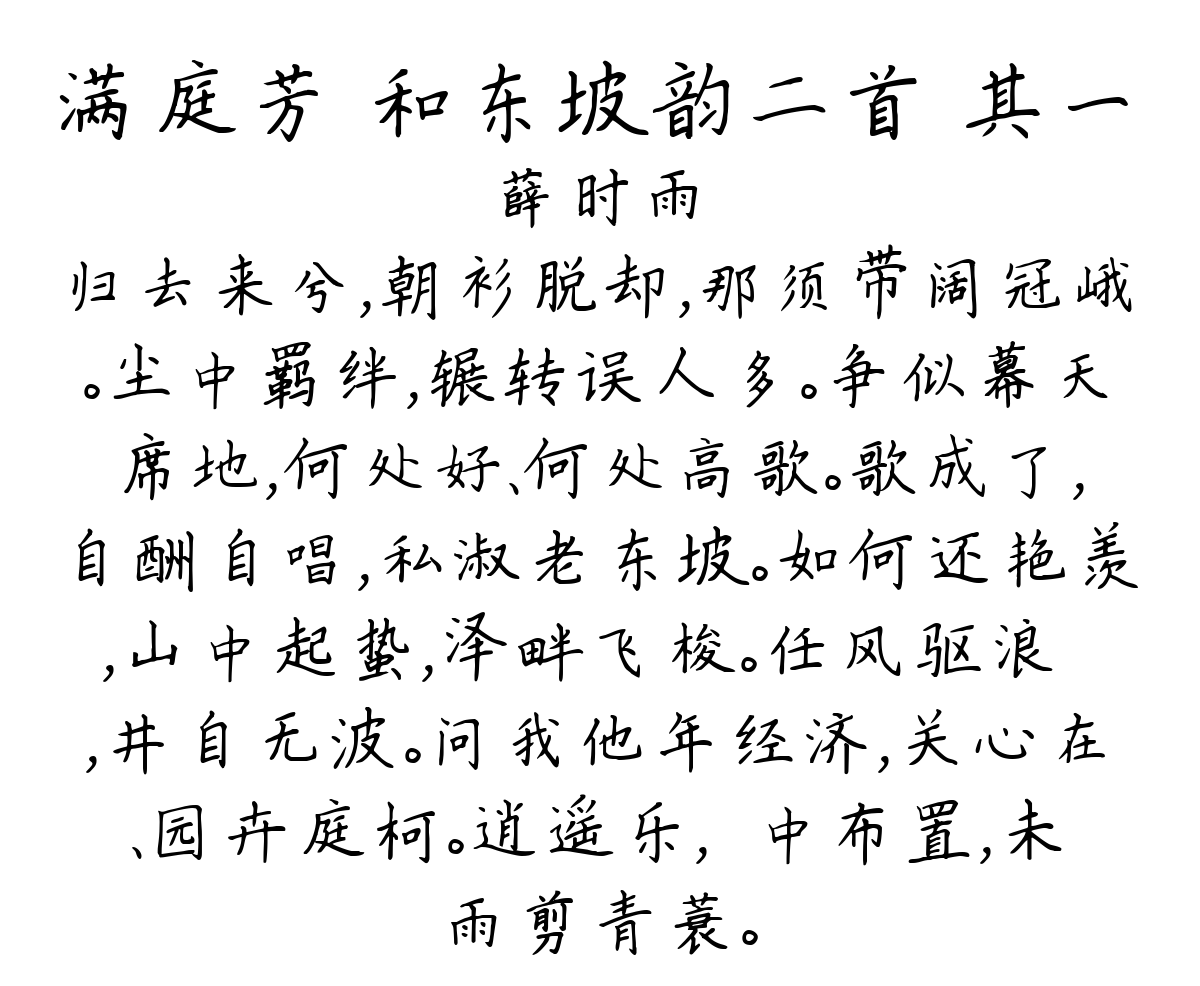 满庭芳 和东坡韵二首 其一
薛时雨
归去来兮,朝衫脱却,那须带阔冠峨
。尘中羁绊,辗转误人多。争似幕天
席地,何处好、何处高歌。歌成了,
自酬自唱,私淑老东坡。如何还艳羡
,山中起蛰,泽畔飞梭。任风驱浪
,井自无波。问我他年经济,关心在
、园卉庭柯。逍遥乐, 中布置,未
雨剪青蓑。